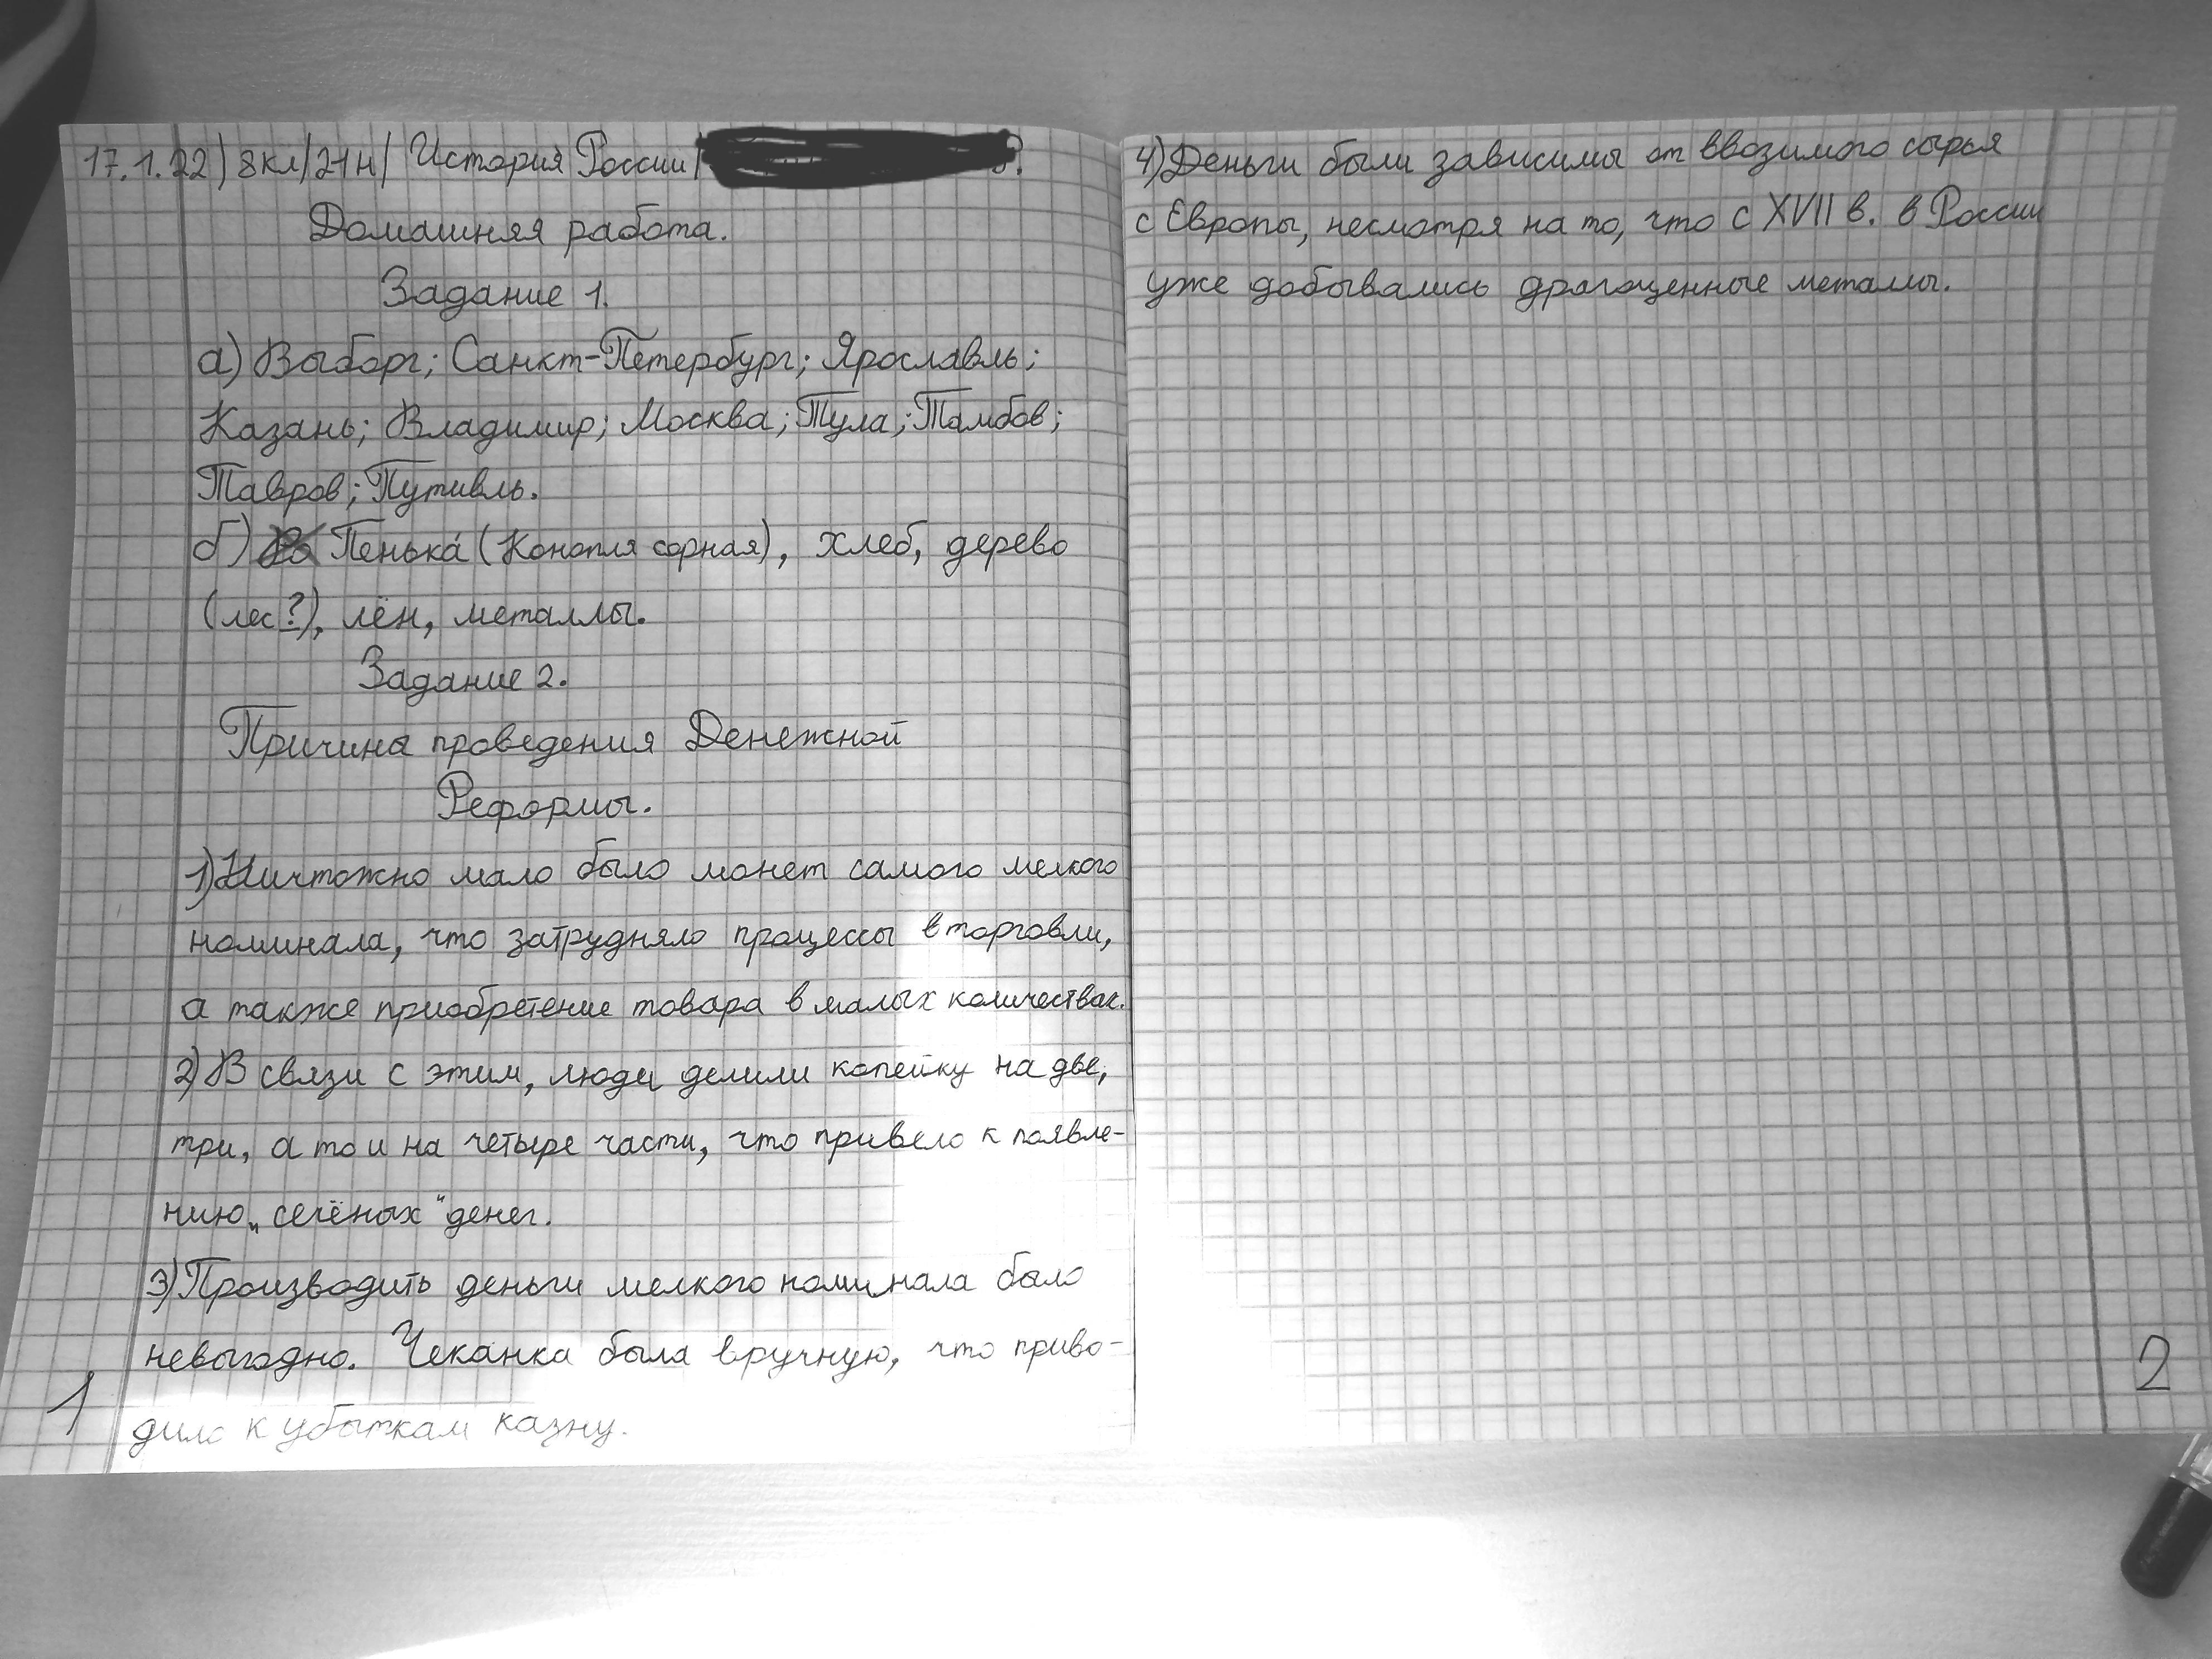 17.1.22) 8кл/21н/ История России/
Домашняя работа.
Задание 1.
а) Выборг; Санкт-Петербург; Ярославль;
Казань; Владимир; Москва; Тула; Тамбов;
Тавров; Путивль.
б) Пенька́ (Конопля сорная), хлеб, дерево
(лес?), лён, металлы.
Задание 2.
Причина проведения Денежной
Реформы.
1) Ничтожно мало было монет самого мелкого
номинала, что затрудняло процессы в торговли,
а также приобретение товара в малых количествах.
2) В связи с этим, люди делили копейку на две,
три, а то и на четыре части, что привело к появле-
нию „сечёных" денег.
3) Производить деньги мелкого номинала было
невыгодно. Чеканка была вручную, что приво-
дило к убыткам казну.
1
4) Деньги были зависимы от ввозимого сырья
с Европы, несмотря на то, что с XVII в. в России
уже добывались драгоценные металлы.
2